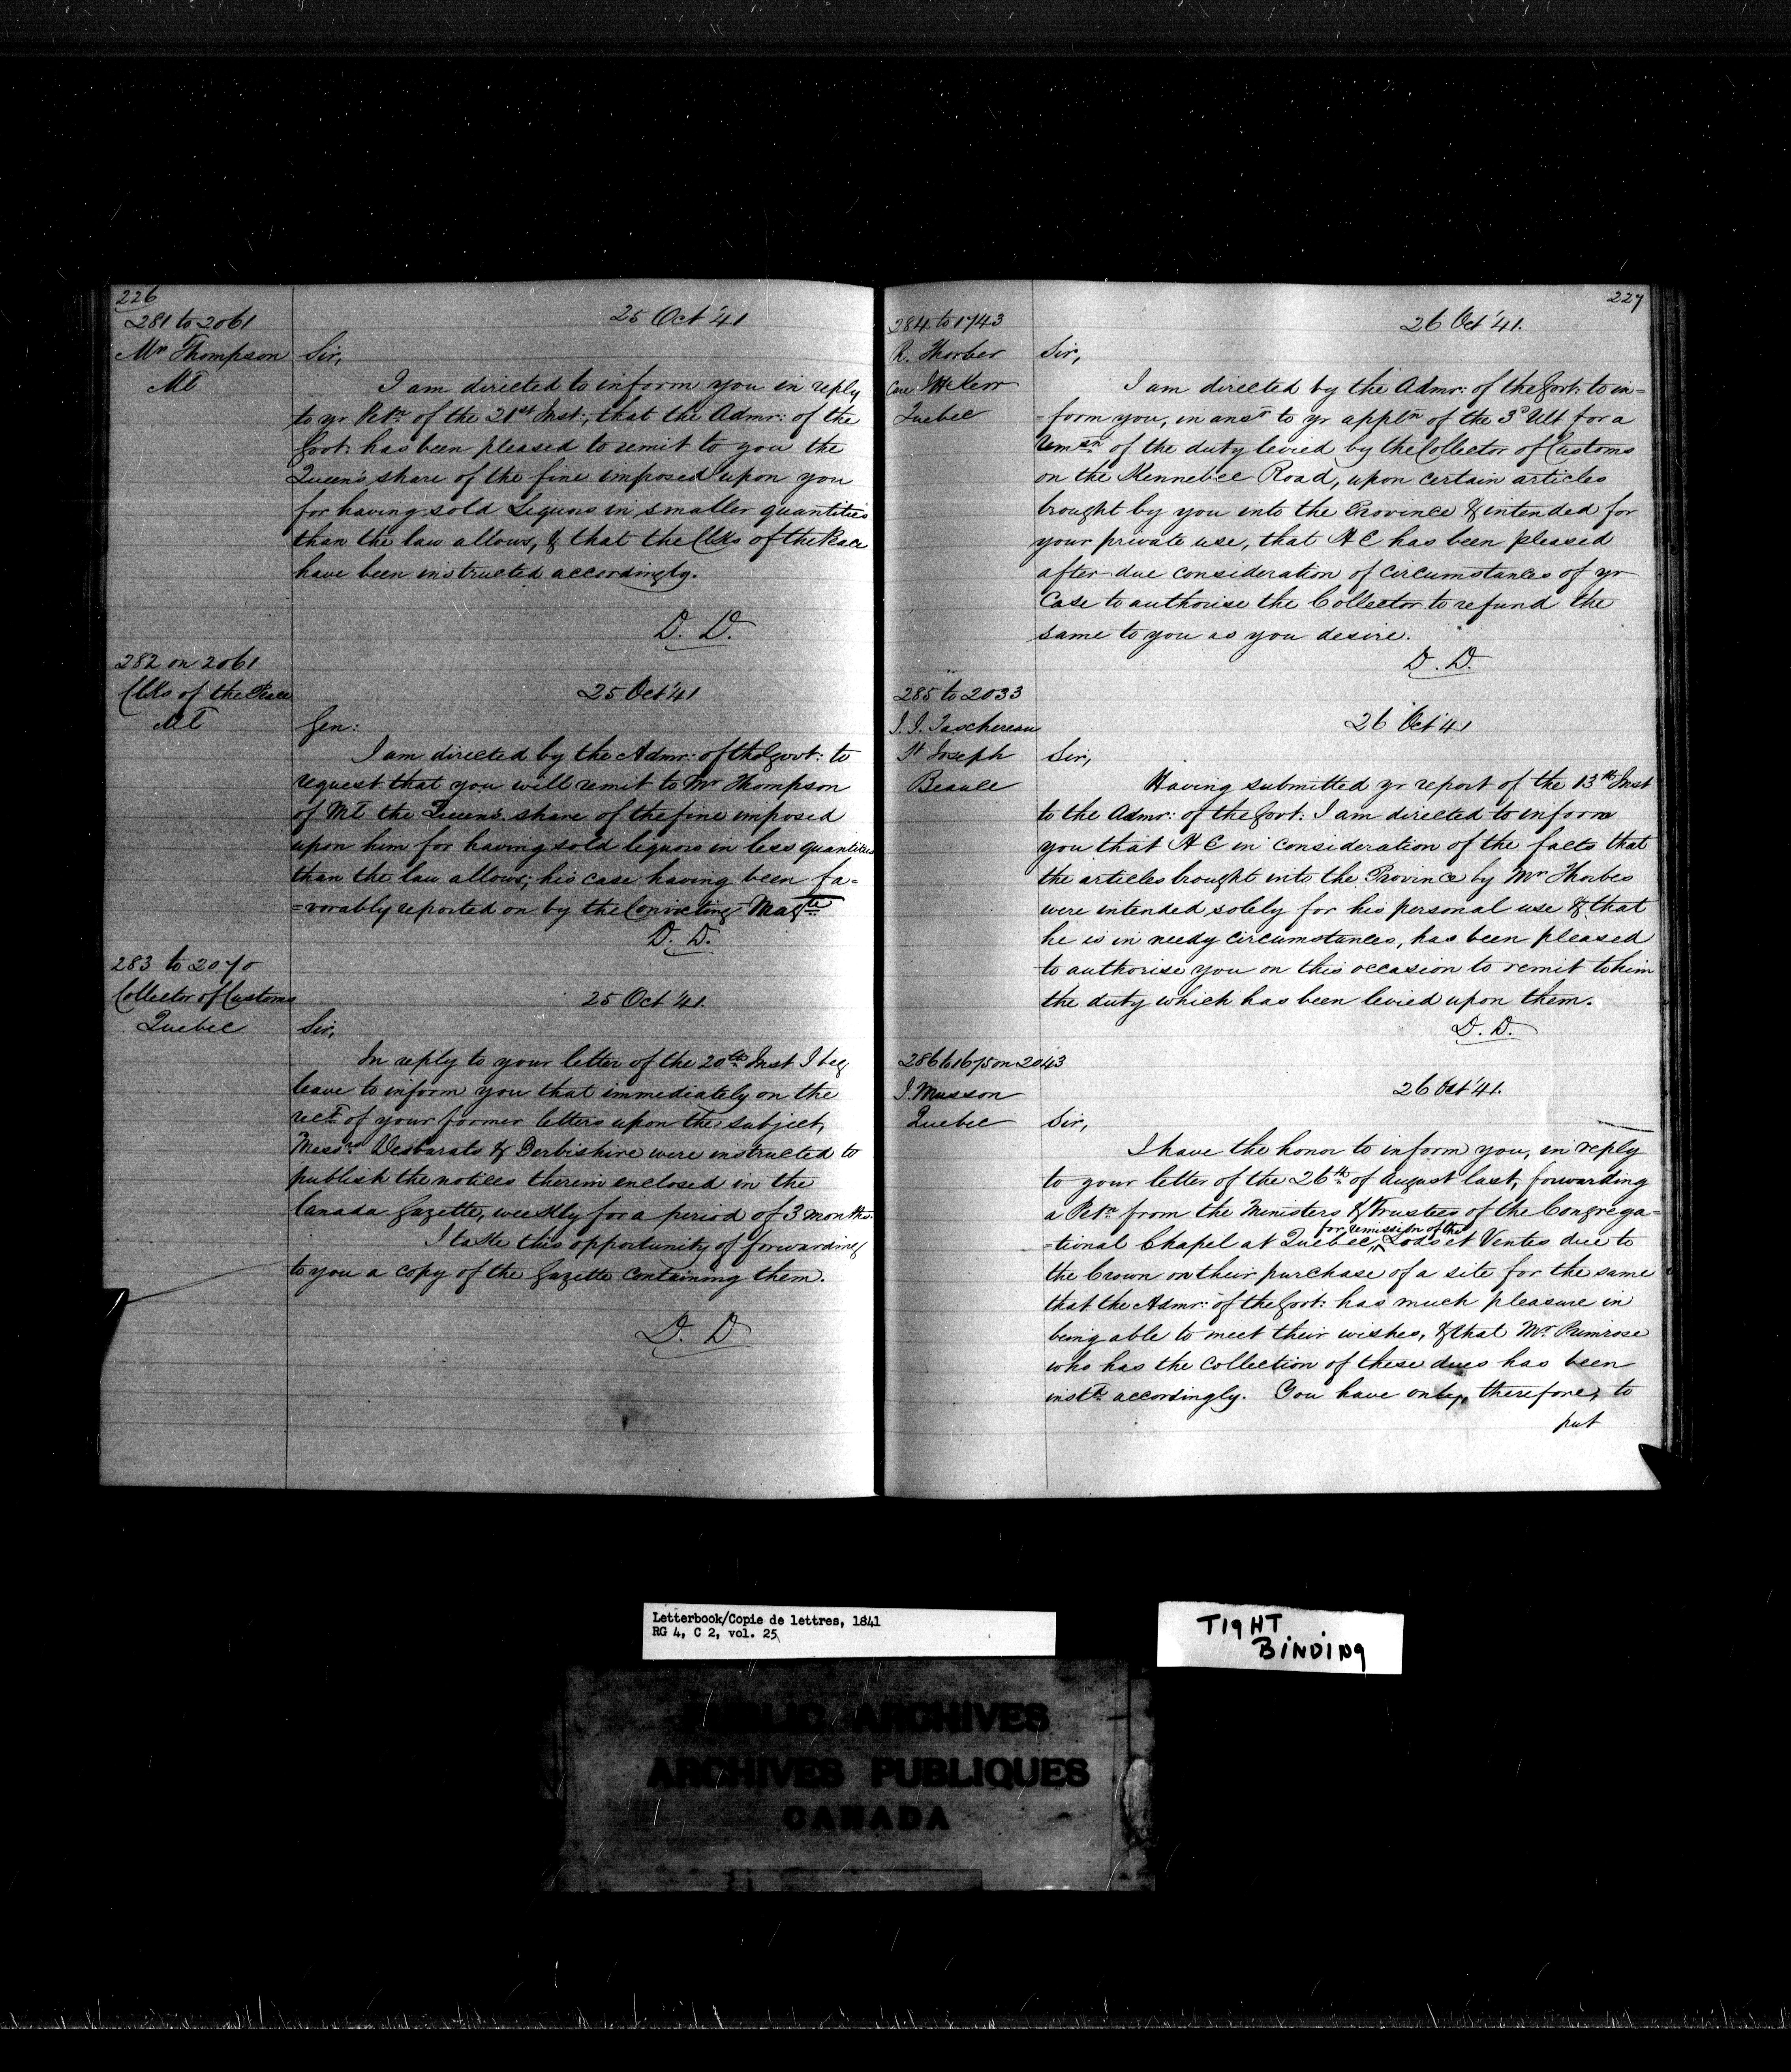 226
281 to 2061
Mr Thompson
Ml
25 Oct '41
Sir,
I am directed to inform you in reply
to yr Petn of the 21st Inst; that the Admr: of the
Govt: has been pleased to remit to you the
Queen's share of the fine imposed upon you
for having sold Liquors in smaller quantities
than the law allows, & that the Clks of the Peace
have been instructed accordingly.
D. D.
282 on 2061
Clks of the Peace
Ml
25 Oct '41
Gen:
I am directed by the Admr: of the Govt: to
request that you will remit to Mr Thompson
of Ml the Queen's share of the fine imposed
upon him for having sold liquors in less quantities
than the law allows; his case having been fa=
=vorably reported on by the Convicting Magte
D. D.
283 to 2070
Collector of Customs
Quebec
25 Oct '41.
Sir,
In reply to your letter of the 20th Inst I beg
leave to inform you that immediately on the
rect of your former letters upon the subject,
Messrs Desbarats & Derbishire were instructed to
publish the notices therein enclosed in the
Canada Gazette, weekly for a period of 3 months.
I take this opportunity of forwarding
to you a copy of the Gazette containing them.
D. D
227
284 to 1743
R. Thorber
Care J H Kerr
Quebec
26 Oct '41.
Sir,
I am directed by the Admr: of the Govt: to in=
=form you, in ansr to yr appln of the 3d Ult for a
remsn of the duty levied by the Collector of Customs
on the Kennebec Road, upon certain articles
brought by you into the Province & intended for
your private use, that H E has been pleased
after due consideration of circumstances of yr
Case to authorise the Collector to refund the
same to you as you desire.
D. D.
285 to 2033
J. J. Taschereau
St Joseph
Beauce
26 Oct '41
Sir,
Having submitted yr report of the 13th Inst
to the Admr: of the Govt: I am directed to inform
you that H E in consideration of the facts that
the articles brought into the Province by Mr Thorber
were intended solely for his personal use & that
he is in needy circumstances, has been pleased
to authorise you on this occasion to remit to him
the duty which has been levied upon them.
D. D.
286 to 1675 on 2043
J. Musson
Quebec
26 Oct '41.
Sir,
I have the honor to inform you, in reply
to your letter of the 26th of August last, forwarding
a Petn from the Ministers & Trustees of the Congrega=
for remission of the
=tional Chapel at Quebec, Lods et Ventes due to
the Crown on their purchase of a site for the same
that the Admr: of the Govt: has much pleasure in
being able to meet their wishes, & that Mr Primrose
who has the Collection of these dues has been
instd accordingly. You have only, therefore, to
put
Letterbook/Copie de lettres, 1841
RG 4, C 2, vol. 25
TIGHT
BINDING
PUBLIC ARCHIVES
ARCHIVES PUBLIQUES
CANADA